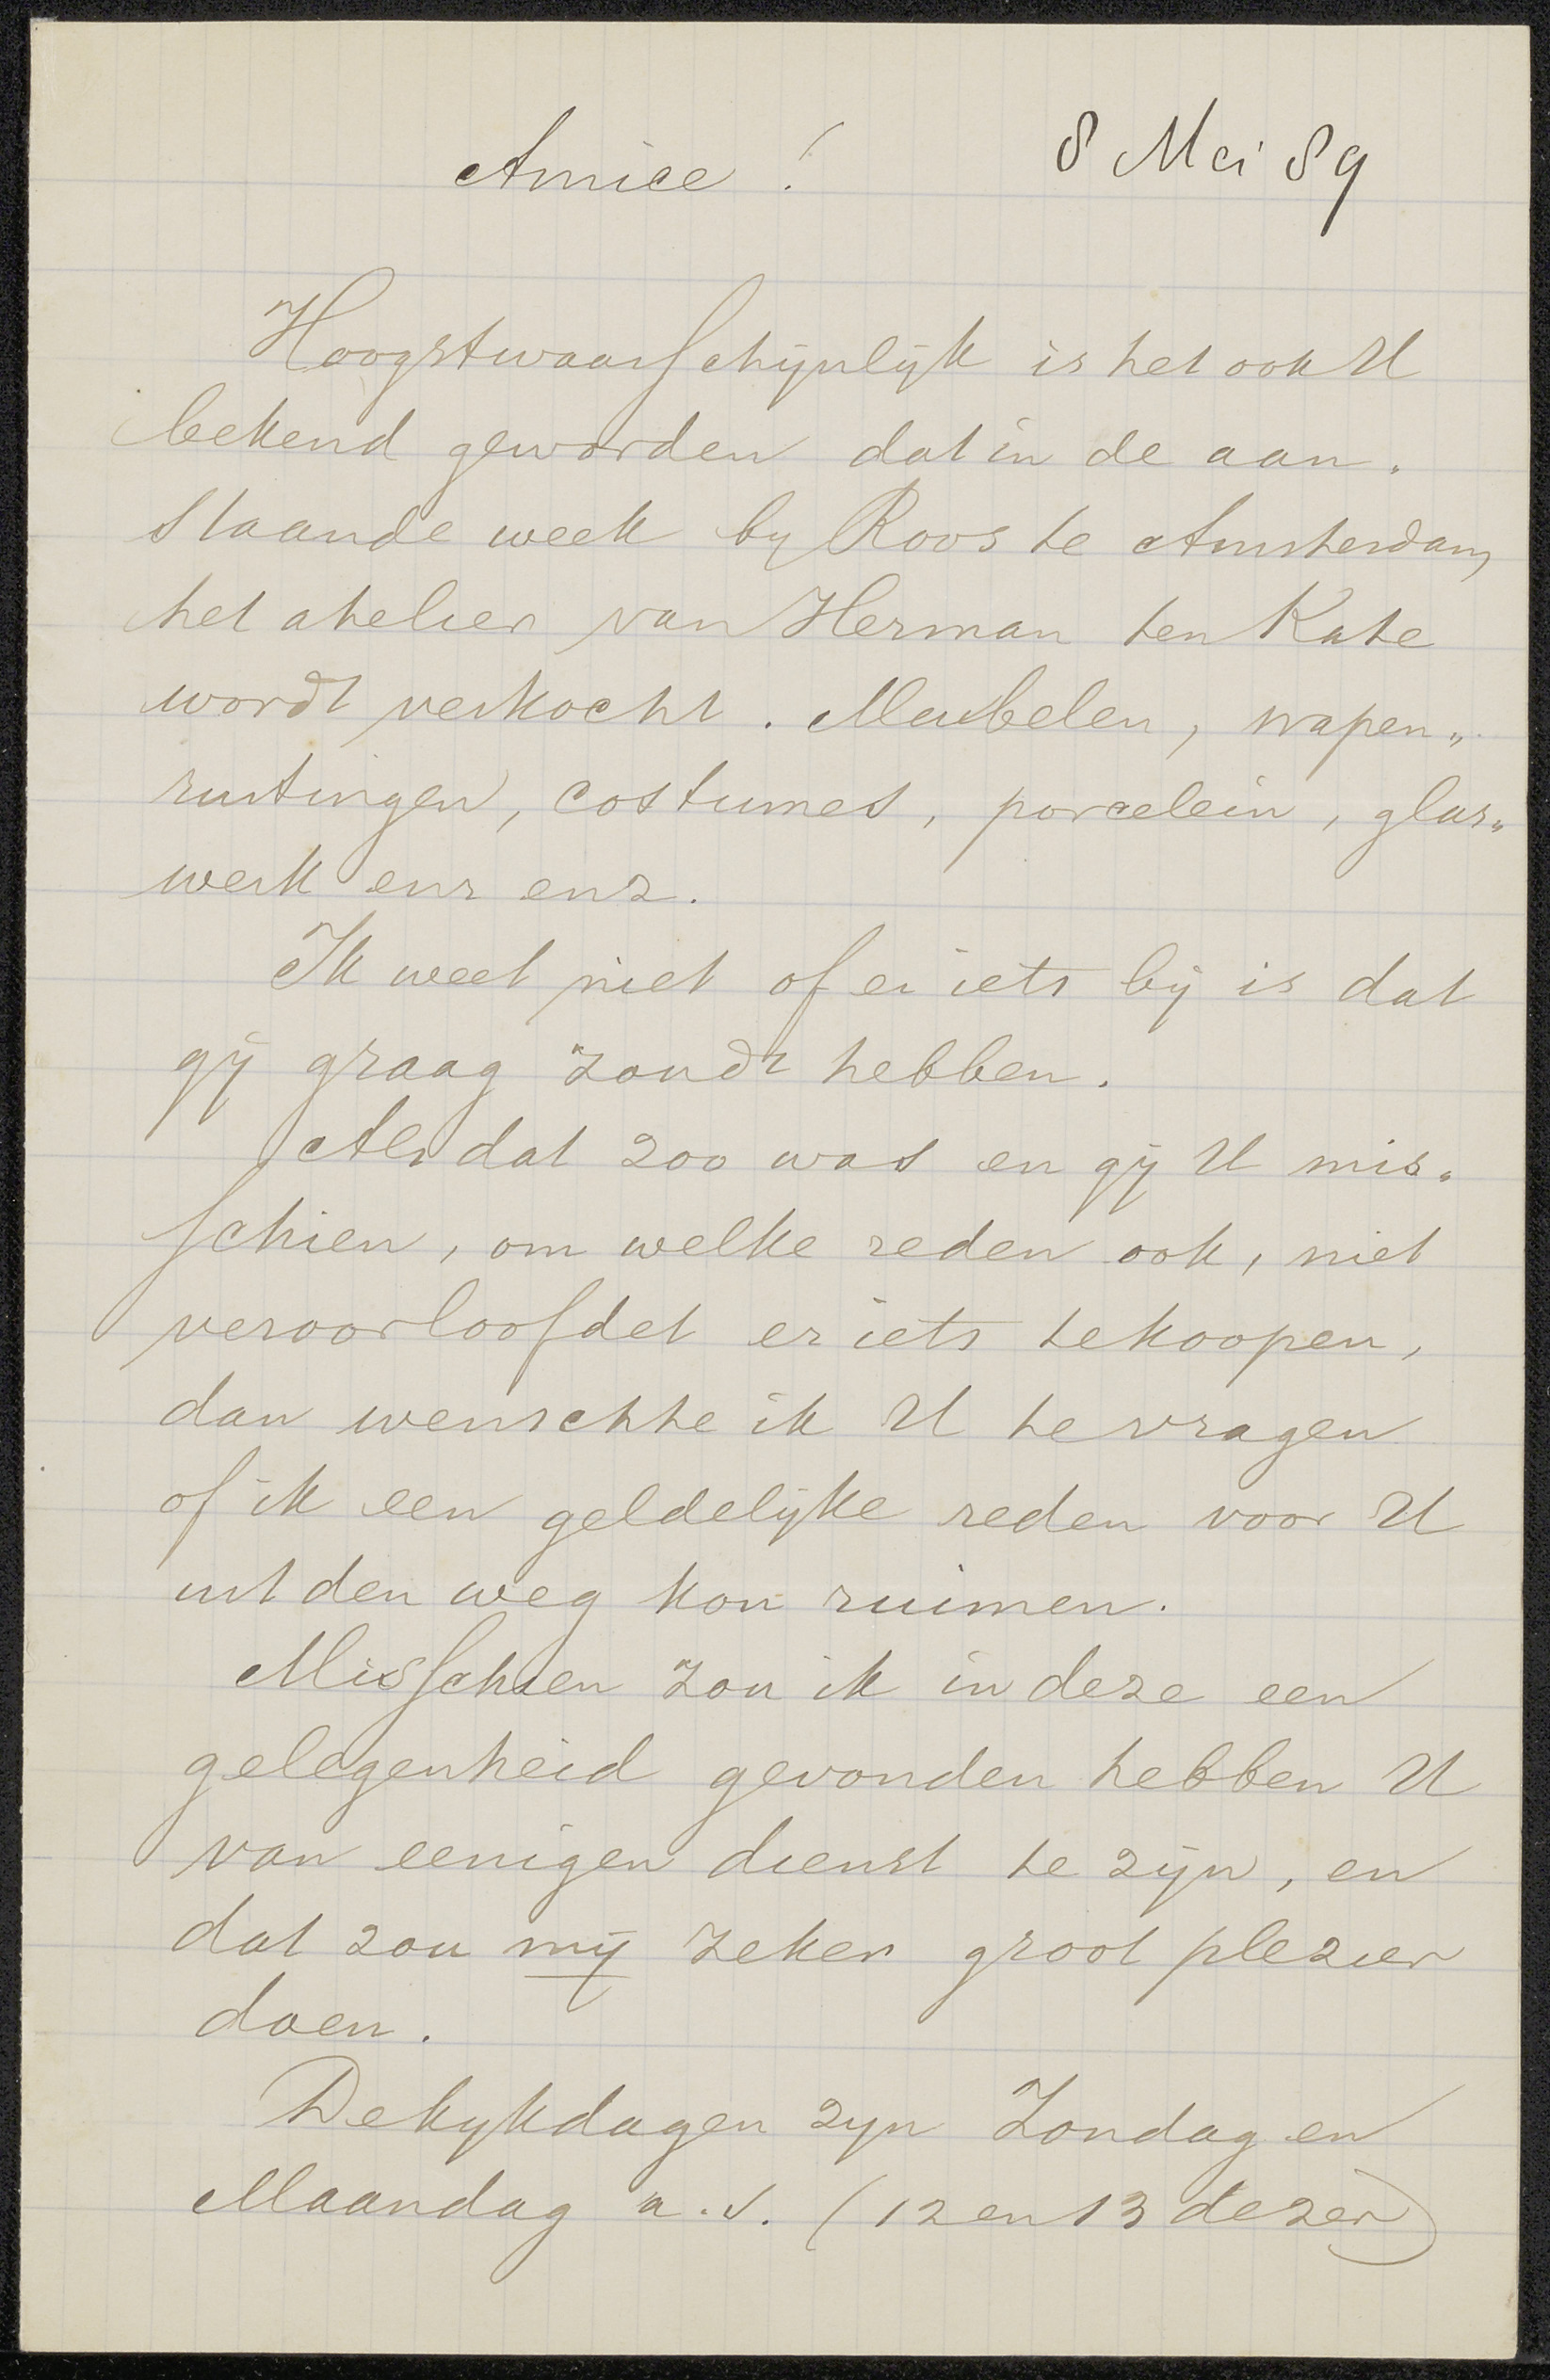 Amice! 8 Mei 89
Hoogstwaarschijnlijk is het ook U
bekend geworden dat in de aan-
staande week by Roos te Amsterdam
het atelier van Herman ten Kate
wordt verkocht. Meubelen, wapen„
rustingen, costumes, porcelein, glas„
werk enz enz.
Ik weet niet of er iets bij is dat
gij graag zoudt hebben.
Als dat zoo was en gij U mis„
schien, om welke reden ook, niet
veroorloofdet er iets te koopen,
dan wenschte ik U te vragen
of ik een geldelijke reden voor U
uit den weg kon ruimen.
Misschien zou ik in deze een
gelegenheid gevonden hebben U
van eenigen dienst te zijn, en
dat zou mij zeker groot plezier
doen.
De kykdagen zyn Zondag en
Maandag a.s. (12 en 13 dezer)